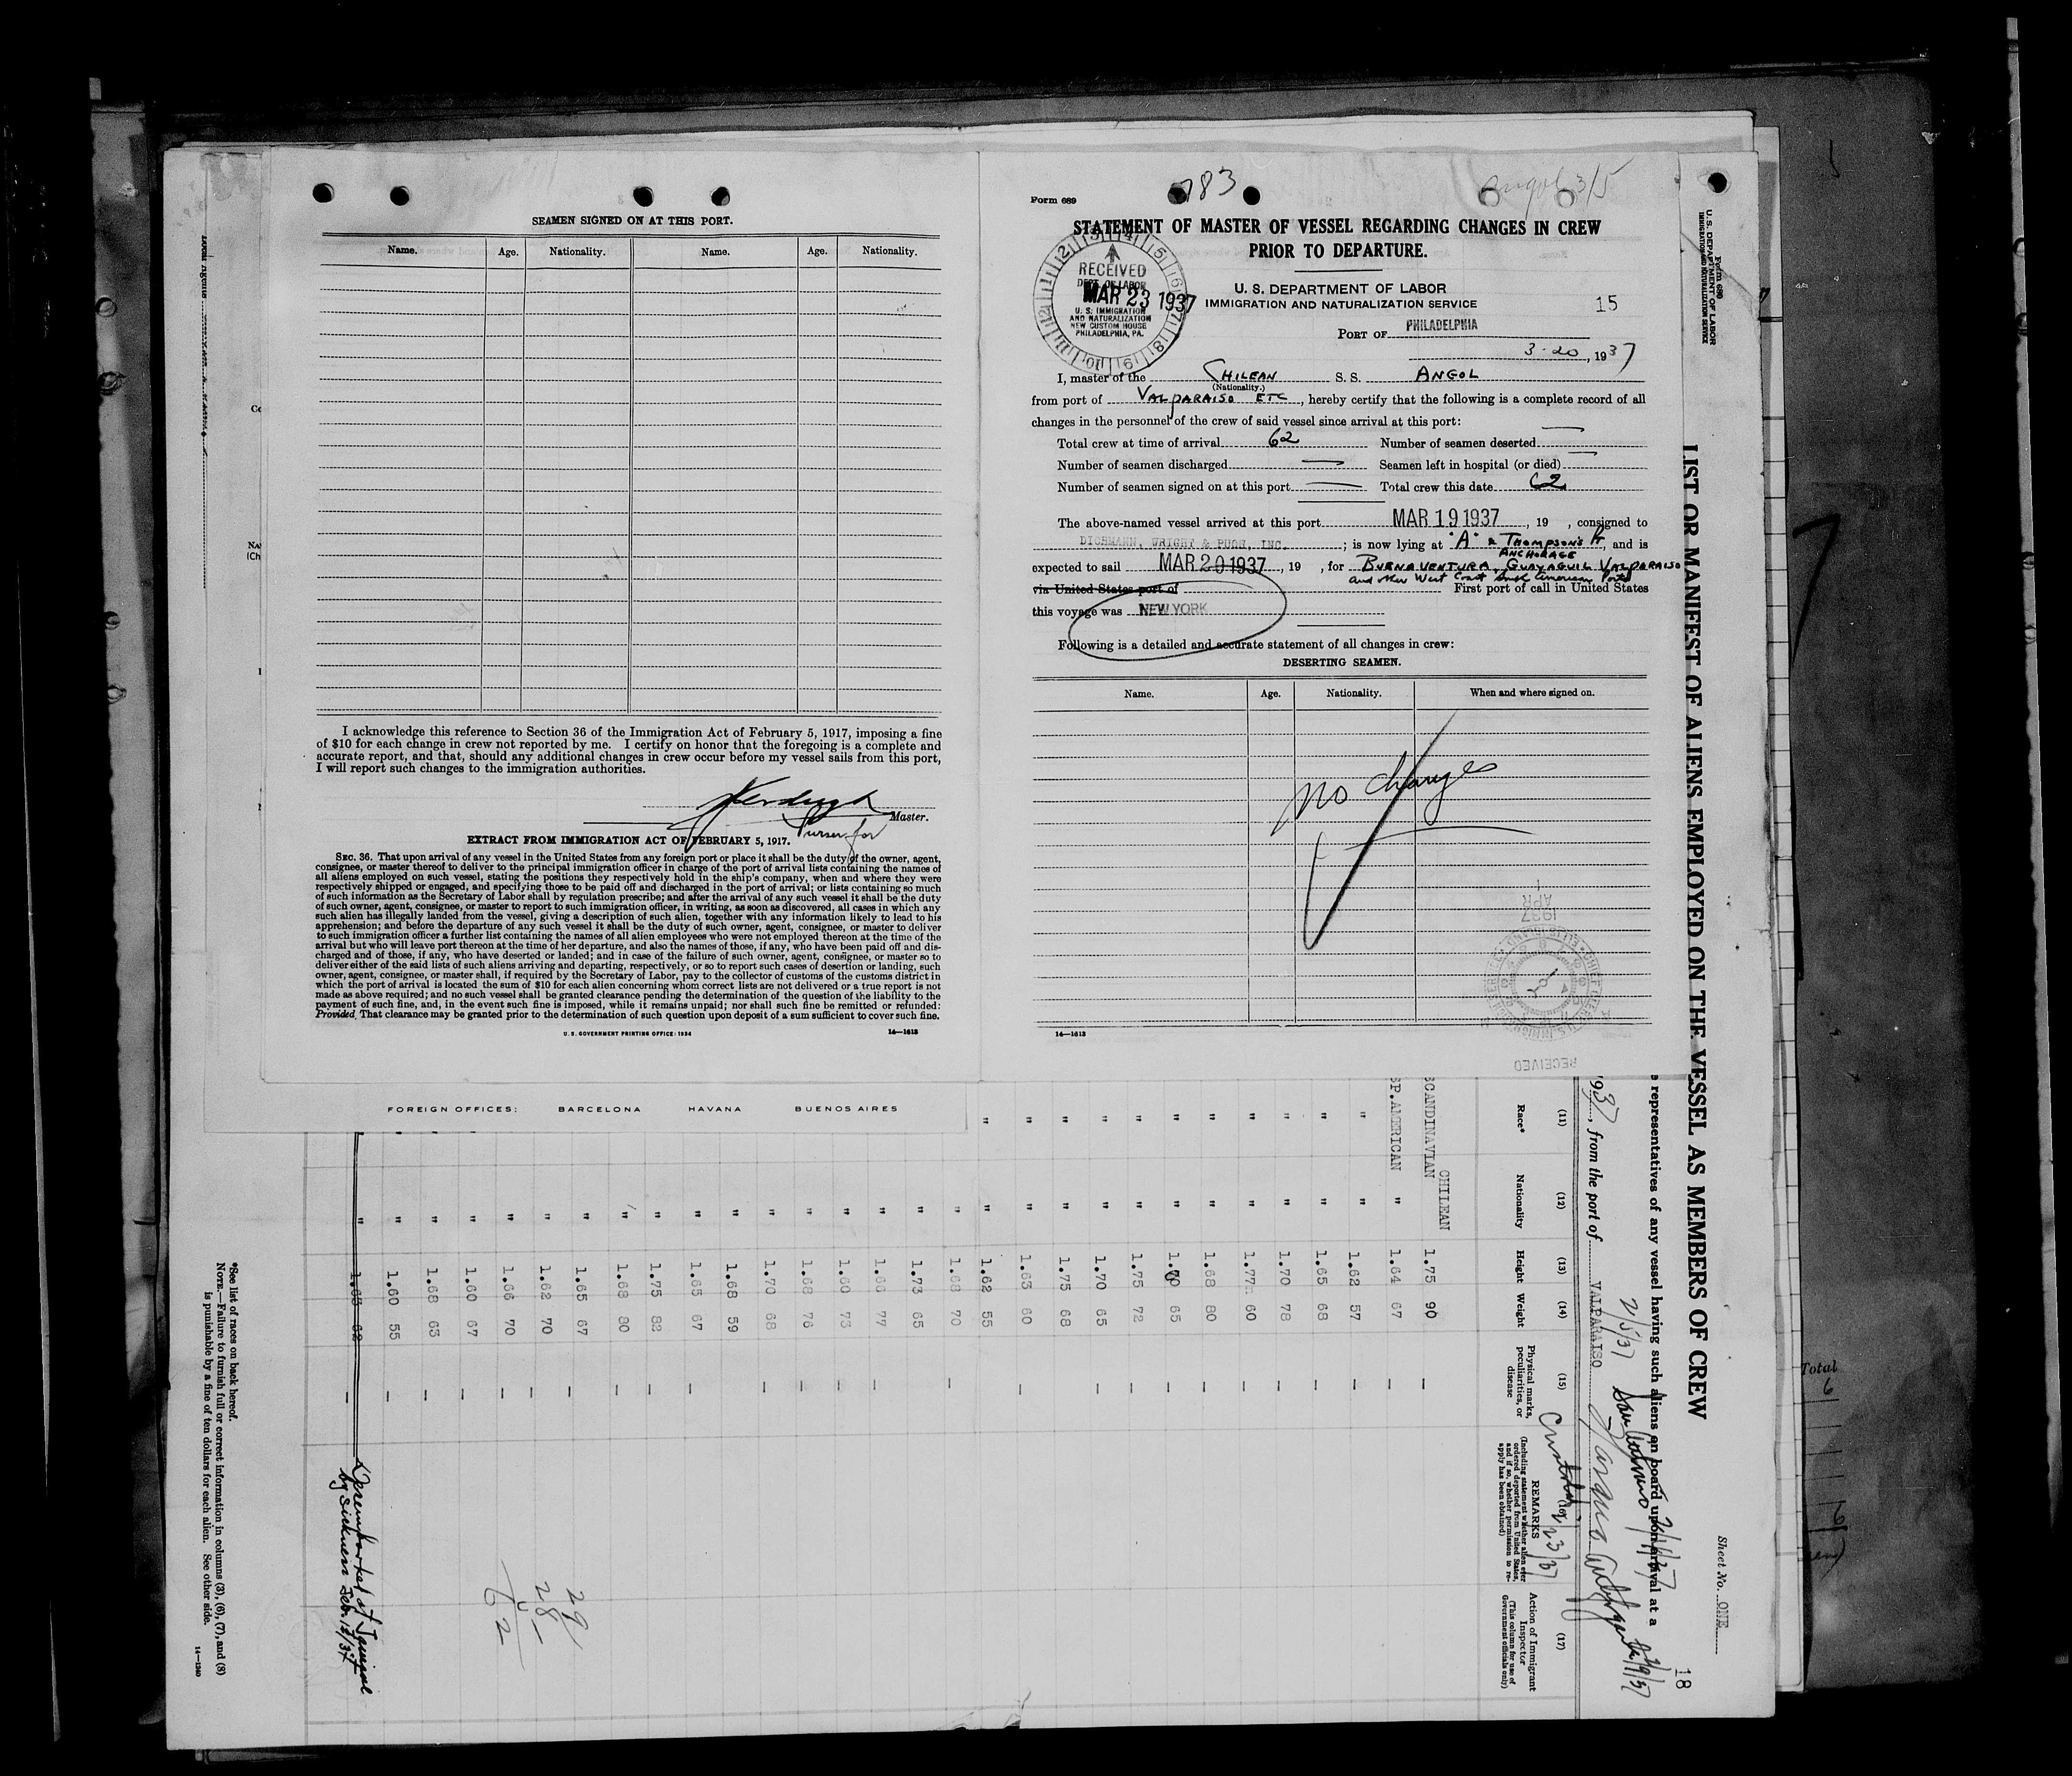 SEAMEN SIGNED ON AT THIS PORT.
Name. Age. Nationality. Name. Age. Nationality.
I acknowledge this reference to Section 36 of the Immigration Act of February 5, 1917, imposing a fine
of $10 for each change in crew not reported by me. I certify on honor that the foregoing is a complete and
accurate report, and that, should any additional changes in crew occur before my vessel sails from this port,
I will report such changes to the immigration authorities.
Master.
Purser for
EXTRACT FROM IMMIGRATION ACT OF FEBRUARY 5, 1917.
SEC. 36. That upon arrival of any vessel in the United States from any foreign port or place it shall be the duty of the owner, agent,
consignee, or master thereof to deliver to the principal immigration officer in charge of the port of arrival lists containing the names of
all aliens employed on such vessel, stating the positions they respectively hold in the ship's company, when and where they were
respectively shipped or engaged, and specifying those to be paid off and discharged in the port of arrival; or lists containing so much
of such information as the Secretary of Labor shall by regulation prescribe; and after the arrival of any such vessel it shall be the duty
of such owner, agent, consignee, or master to report to such immigration officer, in writing, as soon as discovered, all cases in which any
such alien has illegally landed from the vessel, giving a description of such alien, together with any information likely to lead to his
apprehension; and before the departure of any such vessel it shall be the duty of such owner, agent, consignee, or master to deliver
to such immigration officer a further list containing the names of all alien employees who were not employed thereon at the time of the
arrival but who will leave port thereon at the time of her departure, and also the names of those, if any, who have been paid off and dis-
charged and of those, if any, who have deserted or landed; and in case of the failure of such owner, agent, consignee, or master so to
deliver either of the said lists of such aliens arriving and departing, respectively, or so to report such cases of desertion or landing, such
owner, agent, consignee, or master shall, if required by the Secretary of Labor, pay to the collector of customs of the customs district in
which the port of arrival is located the sum of $10 for each alien concerning whom correct lists are not delivered or a true report is not
made as above required; and no such vessel shall be granted clearance pending the determination of the question of the liability to the
payment of such fine, and, in the event such fine is imposed, while it remains unpaid; nor shall such fine be remitted or refunded:
Provided, That clearance may be granted prior to the determination of such question upon deposit of a sum sufficient to cover such fine.
U. S. GOVERNMENT PRINTING OFFICE: 1934 14—1613
FOREIGN OFFICES: BARCELONA HAVANA BUENOS AIRES
Form 689
783
Angol 3/5
STATEMENT OF MASTER OF VESSEL REGARDING CHANGES IN CREW
PRIOR TO DEPARTURE.
RECEIVED
DEPT. OF LABOR
MAR 23 1937
U. S. IMMIGRATION
AND NATURALIZATION
NEW CUSTOM HOUSE
PHILADELPHIA, PA.
U. S. DEPARTMENT OF LABOR
IMMIGRATION AND NATURALIZATION SERVICE
15
PORT OF PHILADELPHIA
3-20, 1937
I, master of the CHILEAN S. S. ANGOL
(Nationality.)
from port of VALPARAISO ETC, hereby certify that the following is a complete record of all
changes in the personnel of the crew of said vessel since arrival at this port:
Total crew at time of arrival 62 Number of seamen deserted —
Number of seamen discharged — Seamen left in hospital (or died) —
Number of seamen signed on at this port — Total crew this date 62
The above-named vessel arrived at this port MAR 19 1937, 19 , consigned to
DICHMANN, WRIGHT & PUGH, INC. ; is now lying at "A" & THOMPSON'S Pt ANCHORAGE, and is
expected to sail MAR 20 1937, 19 , for BUENAVENTURA, GUAYAGUIL VALPARAISO
and other West Coast South American Ports
via United States port of First port of call in United States
this voyage was NEW YORK
Following is a detailed and accurate statement of all changes in crew:
DESERTING SEAMEN.
Name. Age. Nationality. When and where signed on.
no changes
1937
APR
RECEIVED
14—1613
Form 689
U. S. DEPARTMENT OF LABOR
IMMIGRATION AND NATURALIZATION SERVICE
LIST OR MANIFEST OF ALIENS EMPLOYED ON THE VESSEL AS MEMBERS OF CREW
Sheet No. ONE
18
representatives of any vessel having such aliens on board upon arrival at a
1937, from the port of VALPARAISO
2/5/37
(1) (12) (13) (14) (15) (17)
Race* Nationality Height Weight Physical marks, peculiarities, or disease
REMARKS
(Including statement whether alien ever ordered deported from United States, and if so, whether permission to re-apply has been obtained)
Action of Immigrant Inspector
(This column for use of Government officials only)
SCANDINAVIAN CHILEAN 1.75 90 —
SP.AMERICAN " 1.64 67 —
" " 1.62 57 —
" " 1.65 68 —
" " 1.70 78 —
" " 1.77 60 —
" " 1.68 80 —
" " 1.70 65 —
" " 1.75 72 —
" " 1.70 65 —
" " 1.75 68
" " 1.63 60 —
" " 1.62 55
" 1.68 70 —
" 1.73 65
" 1.66 77 —
" 1.60 73 —
" 1.68 76 —
" 1.70 68 —
" 1.68 59
" 1.65 67 —
" 1.75 82 —
" 1.68 80 —
" 1.65 67 —
" 1.62 70 —
" 1.66 70 —
" 1.60 67
" 1.68 63 —
" 1.60 55 —
" 1.63 62 —
by sickness Feb. 12/37
29
28
62
*See list of races on back hereof.
NOTE.—Failure to furnish full or correct information in columns (3), (6), (7), and (8)
is punishable by a fine of ten dollars for each alien. See other side.
14—1240
Total
6